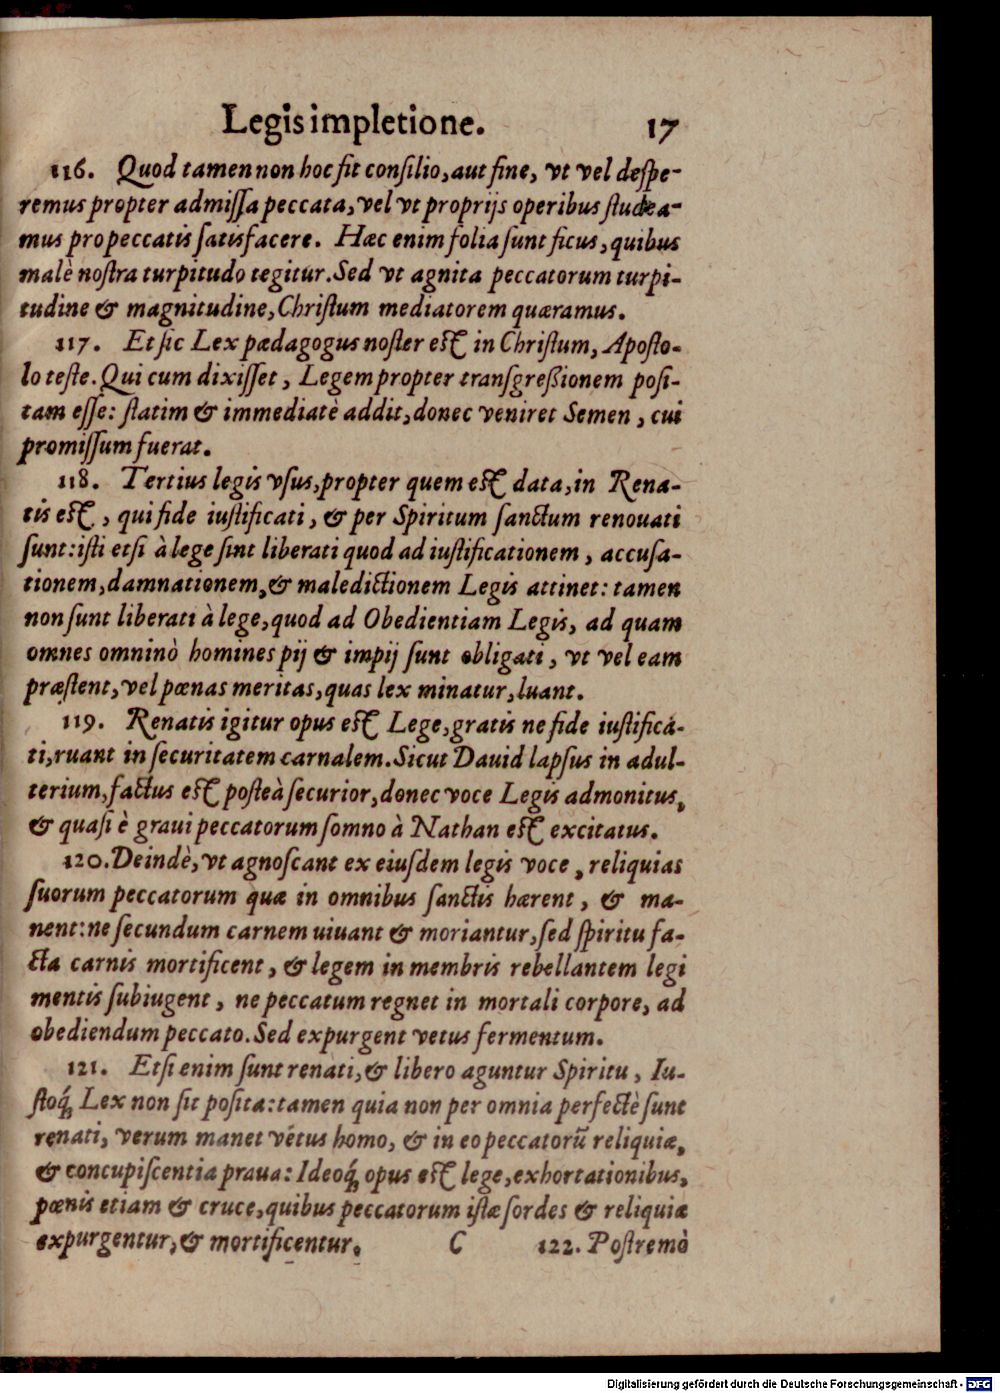 Legis impletione. 17
116. Quod tamen non hoc fit consilio, aut fine, vt vel despe-
remus propter admissa peccata, vel vt proprijs operibus studea-
mus pro peccatis satisfacere. Hæc enim folia sunt ficus, quibus
malè nostra turpitudo tegitur. Sed vt agnita peccatorum turpi-
tudine & magnitudine, Christum mediatorem quæramus.
117. Et sic Lex pædagogus noster est in Christum, Aposto-
lo teste. Qui cum dixisset, Legem propter transgreßionem posi-
tam esse: statim & immediatè addit, donec veniret Semen, cui
promissum fuerat.
118. Tertius legis vsus, propter quem est data, in Rena-
tis est, qui fide iustificati, & per Spiritum sanctum renouati
sunt: isti etsi à lege sint liberati quod ad iustificationem, accusa-
tionem, damnationem, & maledictionem Legis attinet: tamen
non sunt liberati à lege, quod ad Obedientiam Legis, ad quam
omnes omninò homines pij & impij sunt obligati, vt vel eam
præstent, vel pœnas meritas, quas lex minatur, luant.
119. Renatis igitur opus est Lege, gratis ne fide iustifica-
ti, ruant in securitatem carnalem. Sicut Dauid lapsus in adul-
terium, factus est posteà securior, donec voce Legis admonitus,
& quasi è graui peccatorum somno à Nathan est excitatus.
120. Deindè, vt agnoscant ex eiusdem legis voce, reliquias
suorum peccatorum quæ in omnibus sanctis hærent, & ma-
nent: ne secundum carnem uiuant & moriantur, sed spiritu fa-
cta carnis mortificent, & legem in membris rebellantem legi
mentis subiugent, ne peccatum regnet in mortali corpore, ad
obediendum peccato. Sed expurgent vetus fermentum.
121. Etsi enim sunt renati, & libero aguntur Spiritu, Iu-
stoq́; Lex non sit posita: tamen quia non per omnia perfectè sunt
renati, verum manet vetus homo, & in eo peccatorũ reliquiæ,
& concupiscentia praua: Ideoq́; opus est lege, exhortationibus,
pœnis etiam & cruce, quibus peccatorum istæ sordes & reliquiæ
expurgentur, & mortificentur. C 122. Postremò
Digitalisierung gefördert durch die Deutsche Forschungsgemeinschaft - DFG